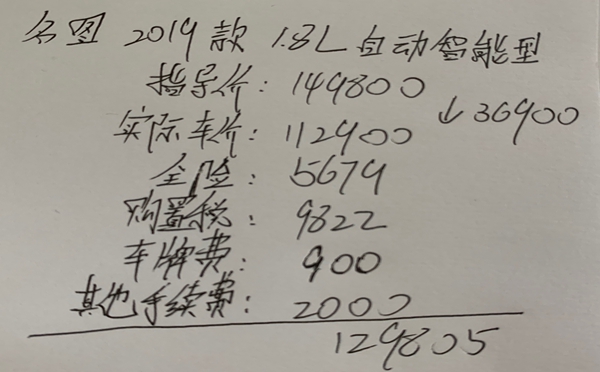 名图 2019款 1.8L自动智能型
指导价：149800
↓36900
实际车价：112900
全险：5679
购置税：9822
车牌费：900
其他手续费：2000
129805